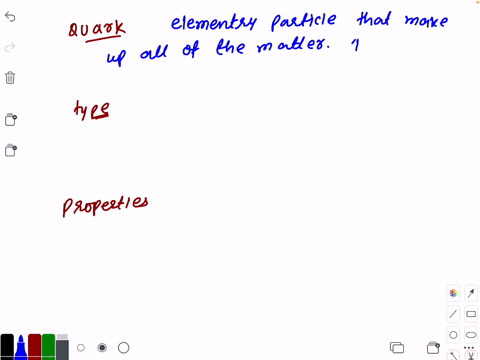 Quark elementry particle that make
up all of the matter.
type
Properties